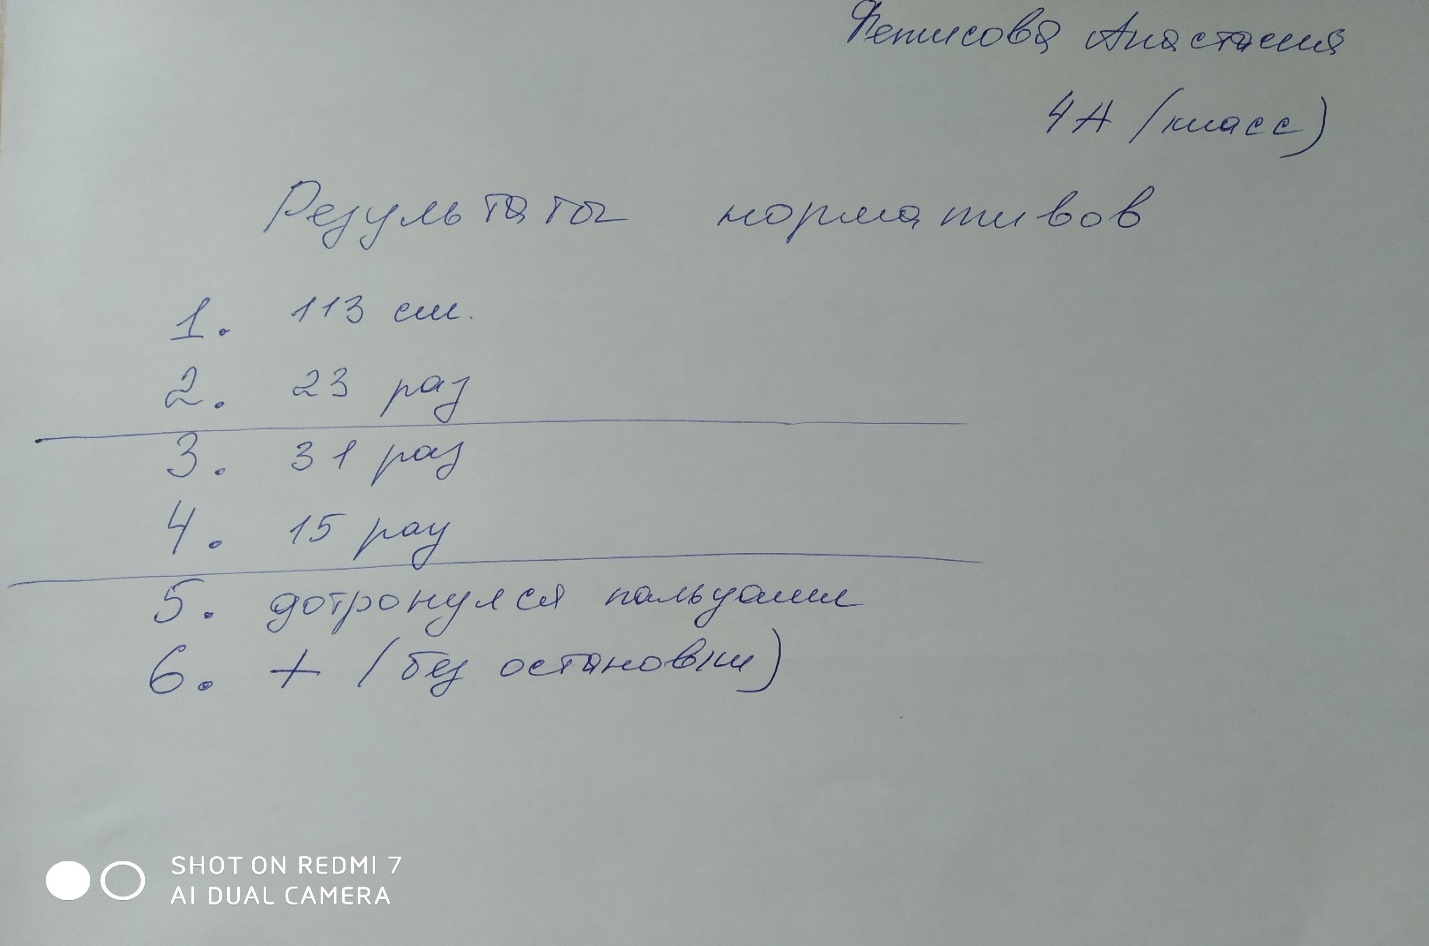 Фетисова Анастасия
4А (класс)
Результаты нормативов
1. 113 см.
2. 23 раз
3. 31 раз
4. 15 раз
5. дотронулся пальцами
6. + (без остановки)
SHOT ON REDMI 7
AI DUAL CAMERA